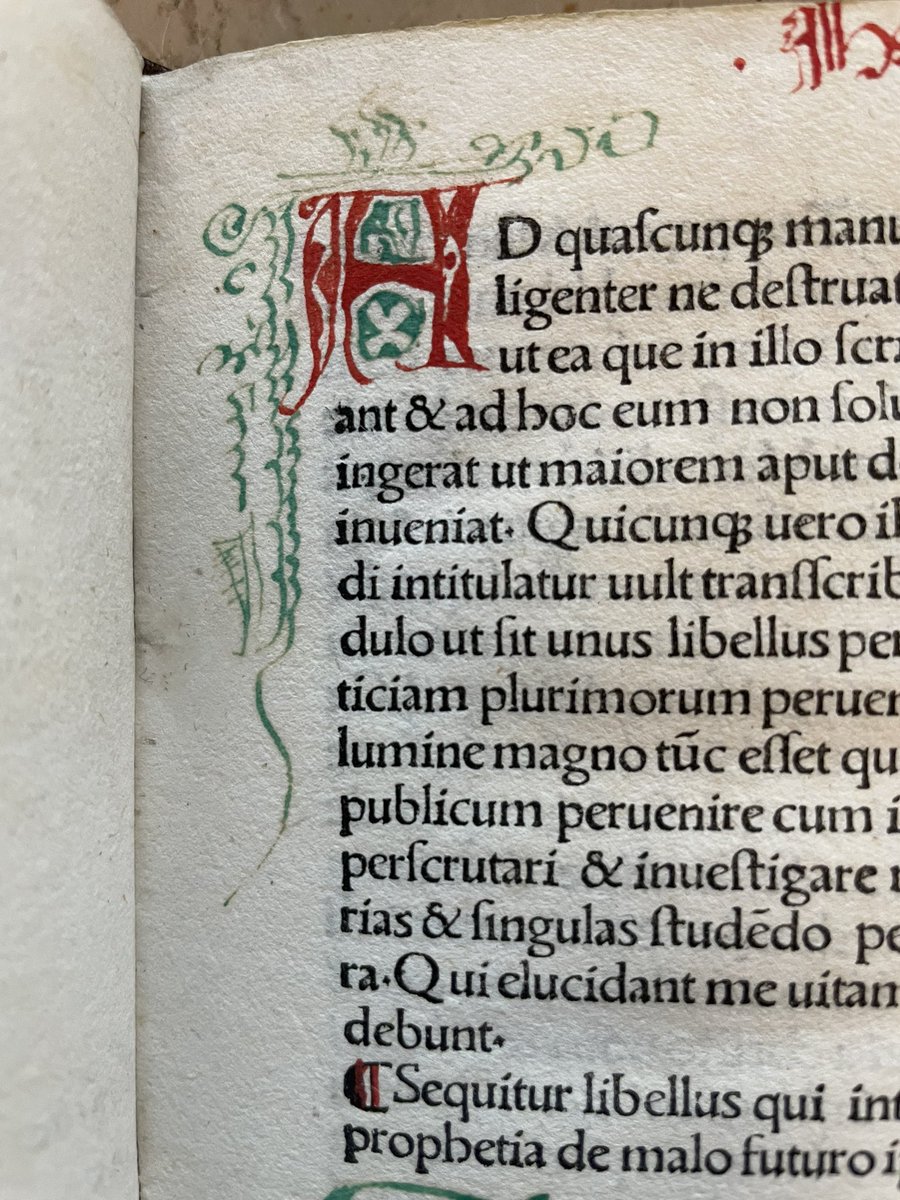 AD quaſcunqꝫ manu
ligenter ne deſtruat
ut ea que in illo ſcri
ant & ad hoc eum non ſolu
ingerat ut maiorem aput d
inueniat. Quicunqꝫ uero il
di intitulatur uult tranſſcrib
dulo ut ſit unus libellus per
ticiam plurimorum peruen
lumine magno tūc eſſet qu
publicum peruenire cum i
perſcrutari & inueſtigare
rias & ſingulas ſtudēdo pe
ra. Qui elucidant me uitam
debunt.
¶ Sequitur libellus qui int
prophetia de malo futuro i